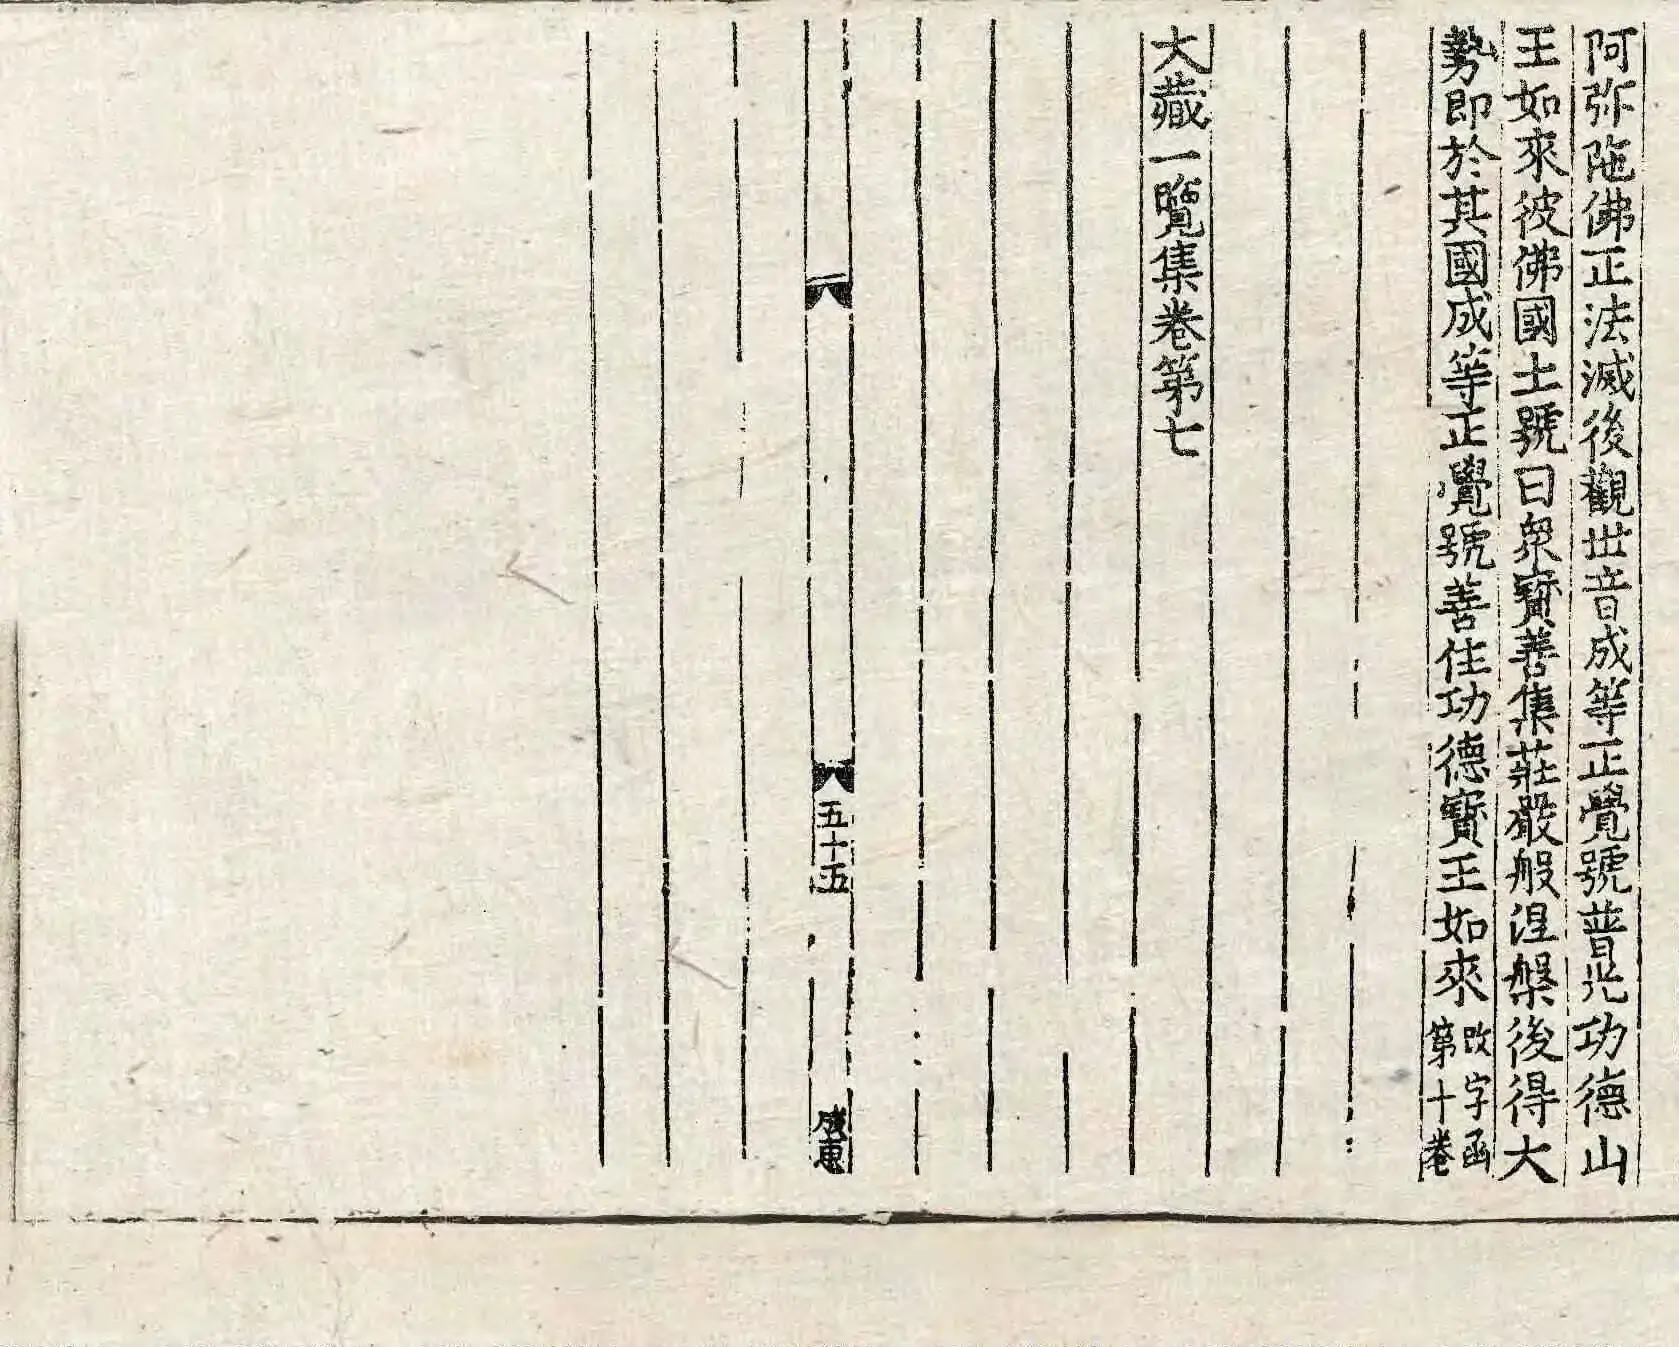 阿弥陁佛正法滅後觀世音成等正覺號普光功德山
王如來彼佛國土號曰衆寳善集莊嚴般涅槃後得大
勢即於其國成等正覺號善住功德寳王如來改字函
第十卷
大藏一覽集卷第七
五十五